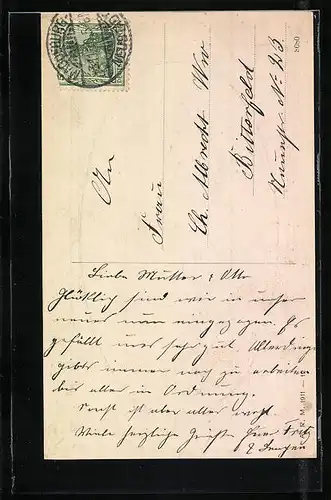 An
Frau
Ch. Albrecht Ww
Bitterfeld
No 23.
Liebe Mutter & Otto
Glücklich sind wir in unser
neues nun eingezogen. Es
gefällt uns sehr gut. Allerdings
gibts immer noch zu arbeiten
bis alles in Ordnung.
Sonst ist aber alles wohl.
Viele herzliche Grüße Euer Fritz
M. 1911